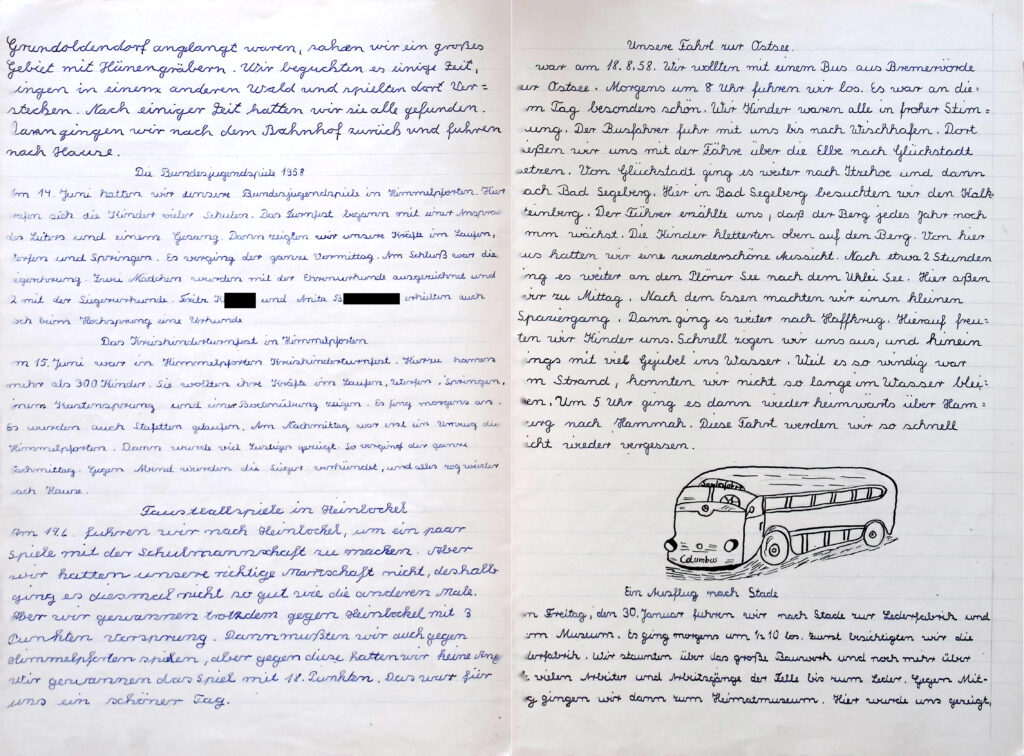 Grundoldendorf anglangt waren, sahen wir ein großes
Gebiet mit Hünengräbern. Wir beguckten es einige Zeit,
ingen in einem anderen Wald und spielten dort Ver=
stecken. Nach einiger Zeit hatten wir sie alle gefunden.
Dann gingen wir nach dem Bahnhof zurück und fuhren
nach Hause.
Die Bundesjugendspiele 1958
Am 14. Juni hatten wir unsere Bundesjugendspiele in Himmelpforten. Hier
rafen sich die Kinder vieler Schulen. Das Turnfest begann mit einer Anspra
des Leiters und einem Gesang. Dann zeigten wir unsere Kräfte im Laufen,
erfen und Springen. Es verging der ganze Vormittag. Am Schluß war die
iegerehrung. Zwei Mädchen wurden mit der Ehrenurkunde ausgezeichnet und
2 mit der Siegerurkunde. Fritz K und Anita B erhielten auch
och beim Hochsprung eine Urkunde
Das Kreiskinderturnfest in Himmelpforten
m 15. Juni war in Himmelpforten Kreiskinderturnfest. Hierzu kamen
mehr als 300 Kinder. Sie wollten ihre Kräfte im Laufen, Werfen, Springen,
inem Kastensprung und einer Bodenübung zeigen. Es fing morgens an.
Es wurden auch Stafetten gelaufen. Am Nachmittag war erst ein Umzug durch
Himmelpforten. Dann wurde viel Lustiges gezeigt. So verging der ganze
Nachmittag. Gegen Abend wurden die Sieger verkündet, und alles zog wieder
ach Hause.
Faustballspiele in Heinbockel
Am 19.6. fuhren wir nach Heinbockel, um ein paar
Spiele mit der Schulmannschaft zu machen. Aber
wir hatten unsere richtige Mannschaft nicht, deshalb
ging es diesmal nicht so gut wie die anderen Male.
Aber wir gewannen trotzdem gegen Heinbockel mit 3
Punkten Vorsprung. Dann mußten wir auch gegen
Himmelpforten spielen, aber gegen diese hatten wir keine Ang
Wir gewannen das Spiel mit 18 Punkten. Das war für
uns ein schöner Tag.
Unsere Fahrt zur Ostsee.
war am 18.8.58. Wir wollten mit einem Bus aus Bremervörde
ur Ostsee. Morgens um 8 Uhr fuhren wir los. Es war an die=
m Tag besonders schön. Wir Kinder waren alle in froher Stim=
ung. Der Busfahrer fuhr mit uns bis nach Wischhafen. Dort
ießen wir uns mit der Fähre über die Elbe nach Glückstadt
etzen. Von Glückstadt ging es weiter nach Itzehoe und dann
ach Bad Segeberg. Hier in Bad Segeberg besuchten wir den Kalk=
teinberg. Der Führer erzählte uns, daß der Berg jedes Jahr noch
mm wächst. Die Kinder kletterten oben auf den Berg. Von hier
us hatten wir eine wunderschöne Aussicht. Nach etwa 2 Stunden
ing es weiter an den Plöner See nach dem Uklei See. Hier aßen
wir zu Mittag. Nach dem Essen machten wir einen kleinen
Spaziergang. Dann ging es weiter nach Haffkrug. Hierauf freu=
ten wir Kinder uns. Schnell zogen wir uns aus, und hinein
ings mit viel Gejubel ins Wasser. Weil es so windig war
m Strand, konnten wir nicht so lange im Wasser blei=
en. Um 5 Uhr ging es dann wieder heimwärts über Ham=
urg nach Hammah. Diese Fahrt werden wir so schnell
icht wieder vergessen.
Sonderfahrt
Columbus
Ein Ausflug nach Stade
m Freitag, den 30. Januar fuhren wir nach Stade zur Lederfabrik und
um Museum. Es ging morgens um ½ 10 los. Zuerst besichtigten wir die
derfabrik. Wir staunten über das große Bauwerk und noch mehr über
vielen Arbeiter und Arbeitsgänge der Felle bis zum Leder. Gegen Mit=
g gingen wir dann zum Heimatmuseum. Hier wurde uns gezeigt,